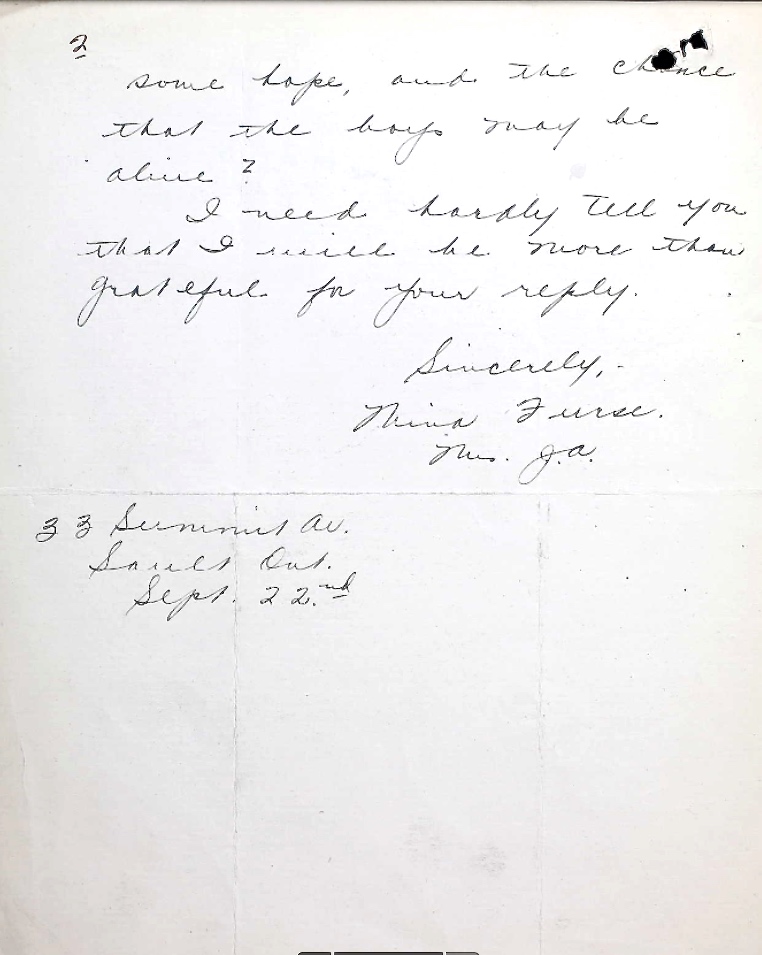 2
some hope, and the chance
that the boys may be
alive?
I need hardly tell you
that I will be more than
grateful for your reply.
Sincerely,-
Nina Furse.
Mrs. J.A.
33 Summit Av.
Sault Ont.
Sept. 22.nd